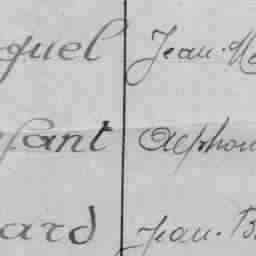 quel Jean-Ma
fant Alphon
ard Jean-B